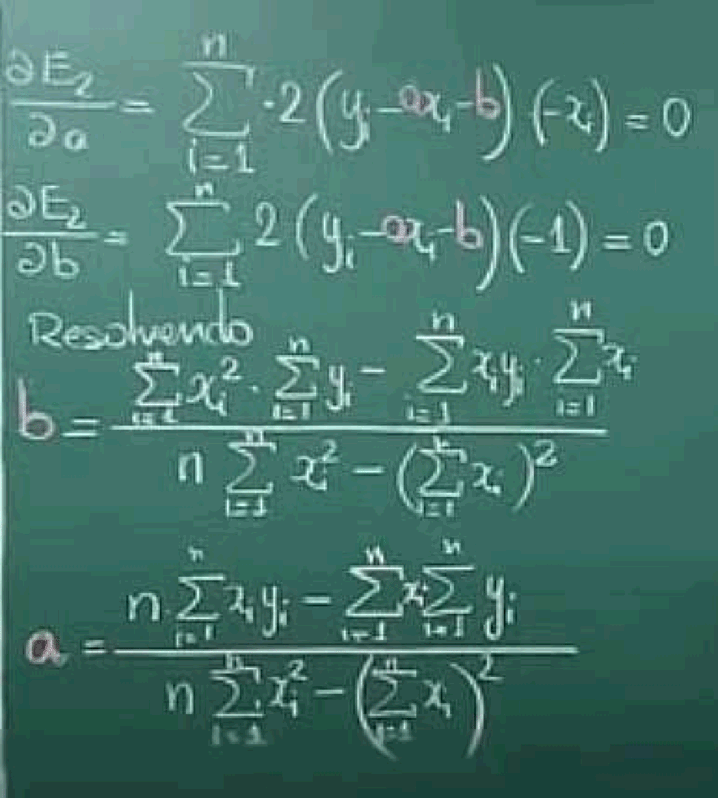 ∂E₂/∂a = ∑_{i=1}^{n} ·2(yᵢ-axᵢ-b)(-xᵢ) = 0
∂E₂/∂b = ∑_{i=1}^{n} 2(yᵢ-axᵢ-b)(-1) = 0
Resolvendo
b = (∑_{i=1}^{n} xᵢ² · ∑_{i=1}^{n} yᵢ - ∑_{i=1}^{n} xᵢyᵢ · ∑_{i=1}^{n} xᵢ) / (n ∑_{i=1}^{n} xᵢ² - (∑_{i=1}^{n} xᵢ)²)
a = (n · ∑_{i=1}^{n} xᵢyᵢ - ∑_{i=1}^{n} xᵢ ∑_{i=1}^{n} yᵢ) / (n ∑_{i=1}^{n} xᵢ² - (∑_{i=1}^{n} xᵢ)²)